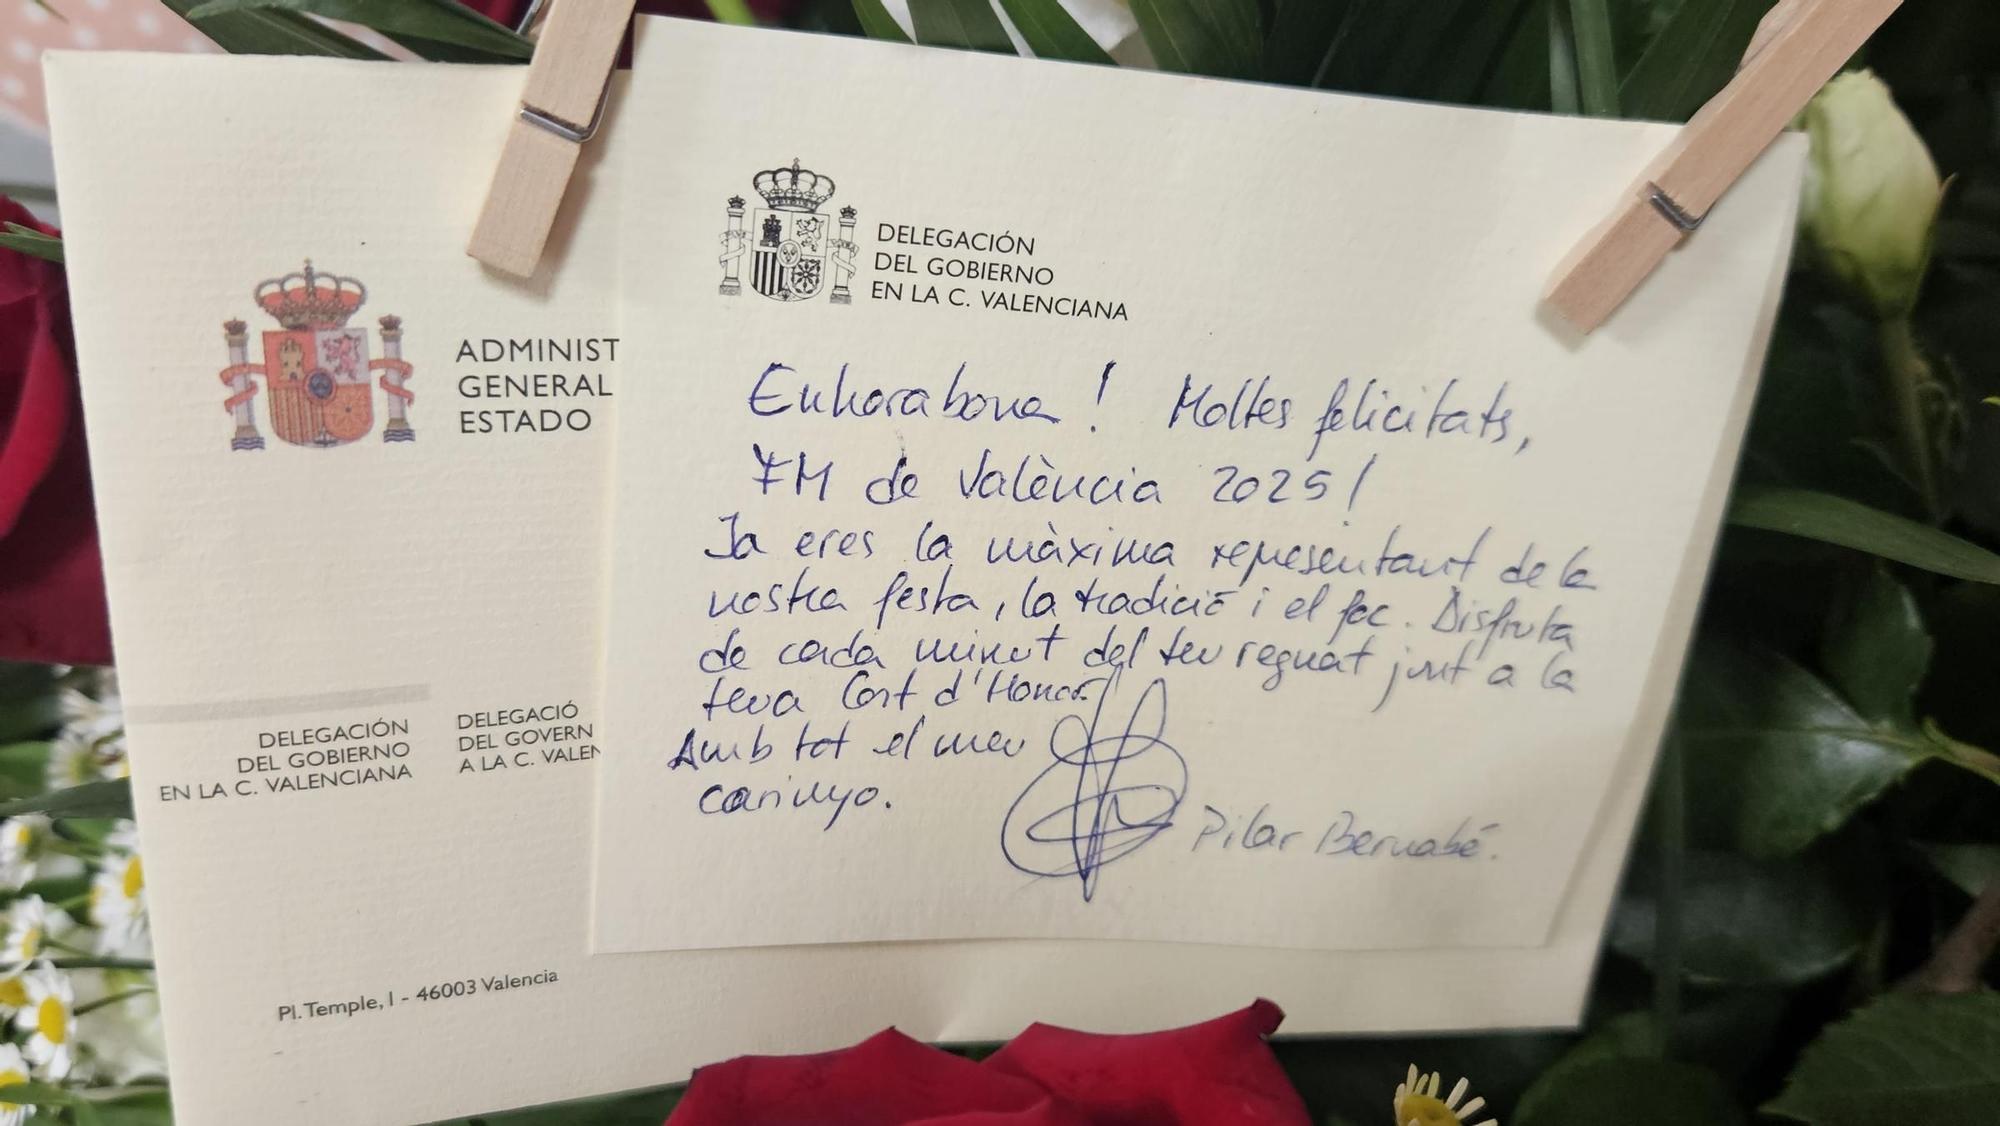 ADMINIST
GENERAL
ESTADO
DELEGACIÓN
DEL GOBIERNO
EN LA C. VALENCIANA
DELEGACIÓ
DEL GOVERN
A LA C. VALEN
Pl. Temple, 1 - 46003 Valencia
DELEGACIÓN
DEL GOBIERNO
EN LA C. VALENCIANA
Enhorabona! Moltes felicitats,
FM de València 2025!
Ja eres la màxima representant de la
nostra festa, la tradició i el foc. Disfruta
de cada minut del teu regnat junt a la
teua Cort d'Honor.
Amb tot el meu
carinyo.
Pilar Bernabé.